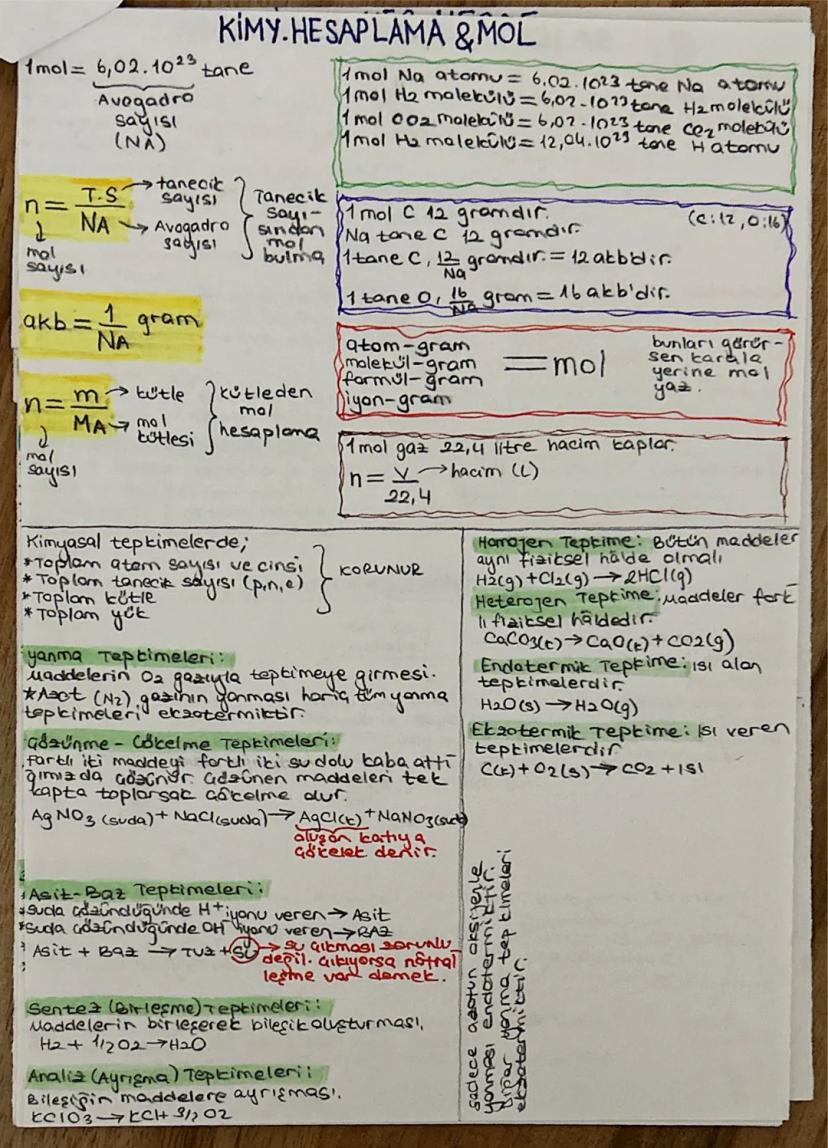 KİMY.HESAPLAMA & MOL
1mol = 6,02.10²³ tane
Avogadro
sayısı
(NA)
n = T.S / NA
→ tanecik
sayısı
→ Avogadro
sayısı
Tanecik
sayı-
sından
mol
bulma
↓
mol
sayısı
akb = 1 / NA gram
n = m / MA
→ kütle
→ mol
kütlesi
kütleden
mol
hesaplama
↓
mol
sayısı
1mol Na atomu = 6,02.10²³ tane Na atomu
1mol H2 molekülü = 6,02.10²³ tane H2 molekülü
1mol CO2 molekülü = 6,02.10²³ tane CO2 molekülü
1mol H2 molekülü = 12,04.10²³ tane H atomu
1 mol C 12 gramdır. (C:12, O:16)
Na tane C 12 gramdır.
1 tane C, 12/Na gramdır. = 12 akb'dir.
1 tane O, 16/Na gram = 16 akb'dir.
atom-gram
molekül-gram
formül-gram
iyon-gram
= mol
bunları görür-
sen karala
yerine mol
yaz.
1 mol gaz 22,4 litre hacim kaplar.
n = V / 22,4 → hacim (L)
Kimyasal tepkimelerde;
*Toplam atom sayısı ve cinsi
*Toplam tanecik sayısı (p,n,e)
*Toplam kütle
*Toplam yük
KORUNUR
Yanma Tepkimeleri:
Maddelerin O2 gazıyla tepkimeye girmesi.
*Azot (N2) gazının yanması hariç tüm yanma
tepkimeleri ekzotermiktir.
Çözünme - Çökelme Tepkimeleri:
Farklı iki maddeyi farklı iki su dolu kaba attı
ğımızda çözünür. Çözünen maddeleri tek
kapta toplarsak çökelme olur.
AgNO3 (suda) + NaCl (suda) → AgCl(k) + NaNO3 (suda)
oluşan katıya
çökelek denir.
Asit-Baz Tepkimeleri:
*Suda çözündüğünde H⁺ iyonu veren → Asit
*Suda çözündüğünde OH⁻ iyonu veren → BAZ
Asit + Baz → Tuz + Su → su çıkması zorunlu
değil. çıkıyorsa nötral
leşme var demek.
Sentez (Birleşme) Tepkimeleri:
Maddelerin birleşerek bileşik oluşturması.
H2 + 1/2 O2 → H2O
Analiz (Ayrışma) Tepkimeleri:
Bileşiğin maddelere ayrışması.
KClO3 → KCl + 3/2 O2
Homojen Tepkime: Bütün maddeler
aynı fiziksel hâlde olmalı
H2(g) + Cl2(g) → 2HCl(g)
Heterojen Tepkime: Maddeler fark
lı fiziksel hâldedir.
CaCO3(k) → CaO(k) + CO2(g)
Endotermik Tepkime: ısı alan
tepkimelerdir.
H2O(s) → H2O(g)
Ekzotermik Tepkime: ısı veren
tepkimelerdir
C(k) + O2(g) → CO2 + ısı
Sadece azotun oksijenle
yanması endotermiktir.
Diğer yanma tepkimeleri
ekzotermiktir.